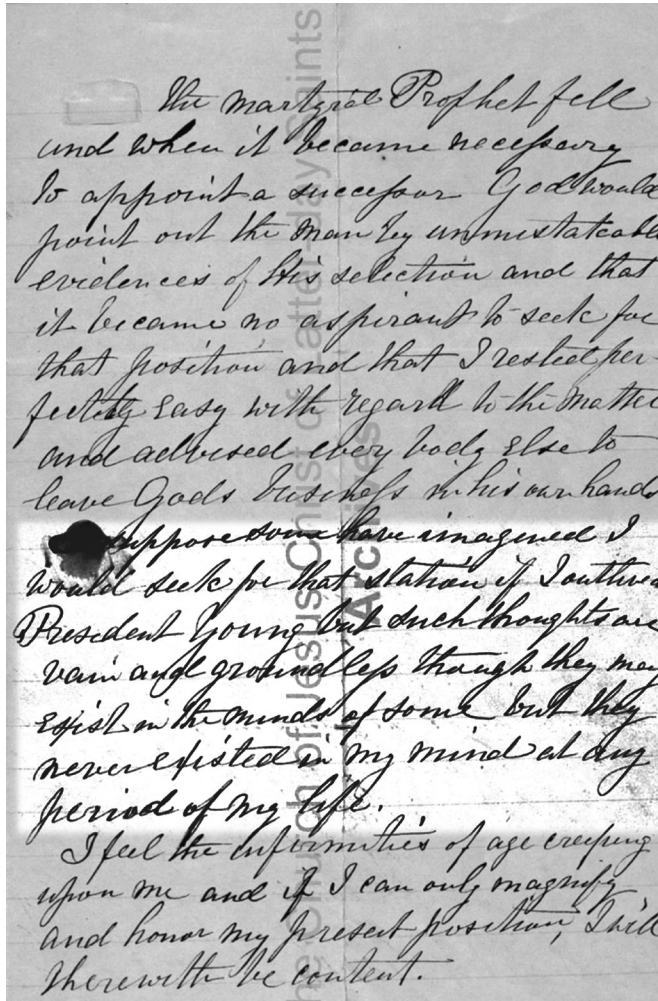 the martyred Prophet fell
and when it became necessary
to appoint a successor God would
point out the man by unmistakable
evidences of His selection and that
it became no aspirant to seek for
that position and that I rested per-
fectly easy with regard to the matter
and advised every body else to
leave Gods business in his own hands
suppose some have imagined I
would seek for that station if I outlived
President Young but such thoughts are
vain and groundless though they may
exist in the minds of some but they
never existed in my mind at any
period of my life.
I feel the infirmities of age creeping
upon me and if I can only magnify
and honor my present position, I will
therewith be content.
The Church of Jesus Christ of Latter-day Saints
Archives